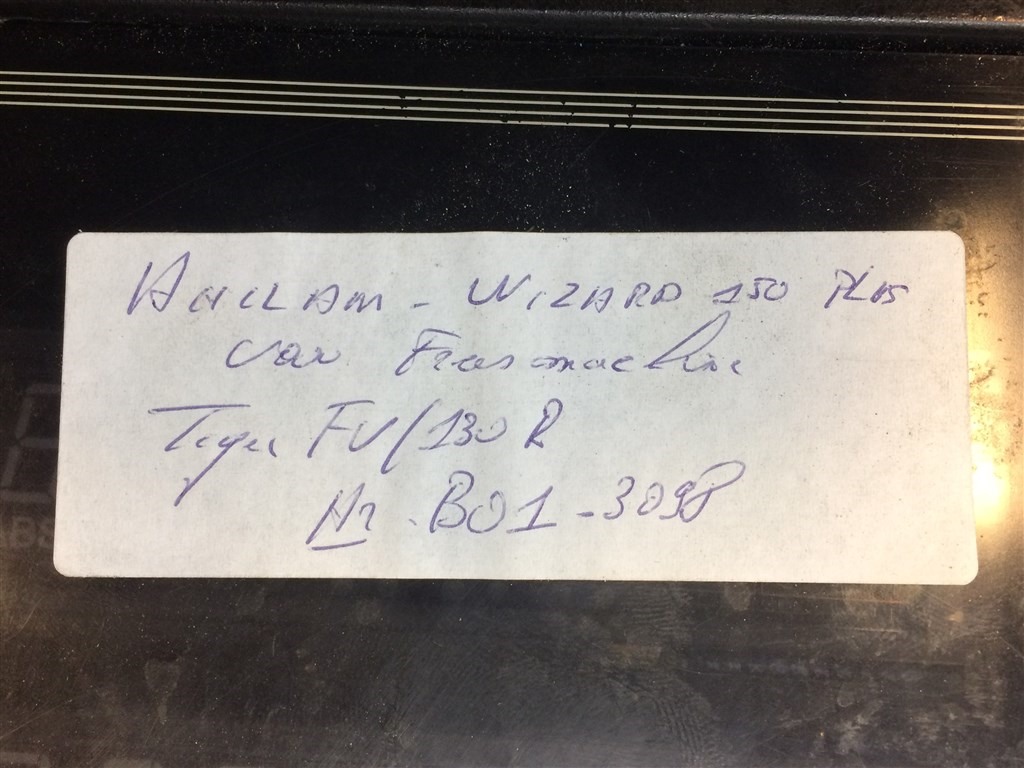 Anilam - WIZARD 150 PLUS
van Freesmachine
Type FV/130 R
Nr. B01-3098
ABS